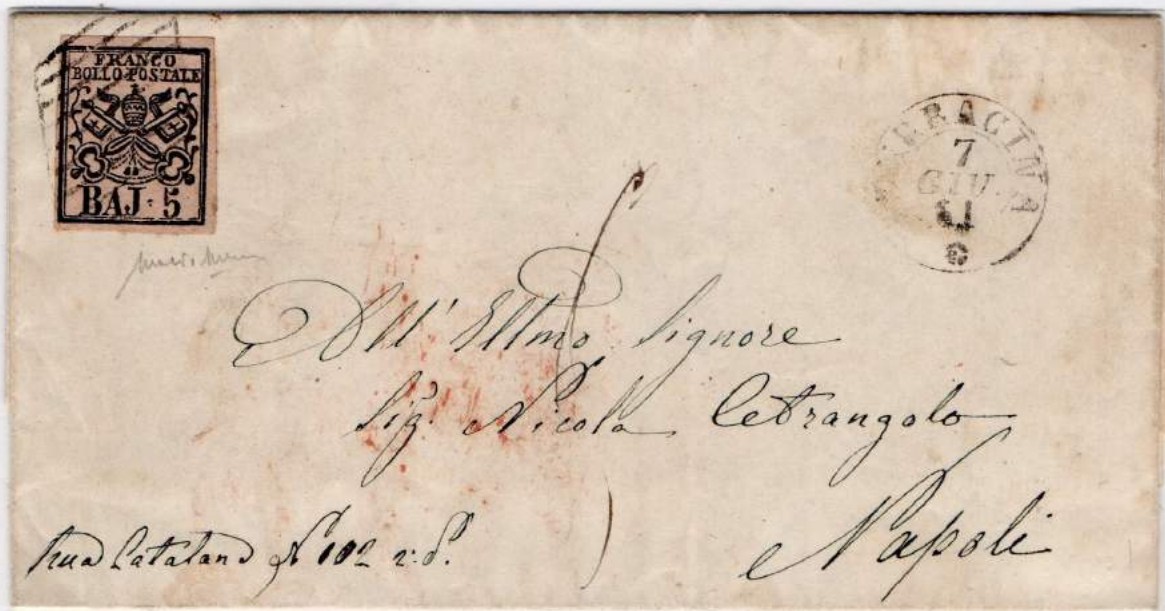 FRANCO
BOLLO POSTALE
BAJ. 5
TERRACINA
7
GIU.
61
All' Illmo Signore
Sig. Nicola Cetrangolo
Napoli
Rua Catalana N° 102 2: P.